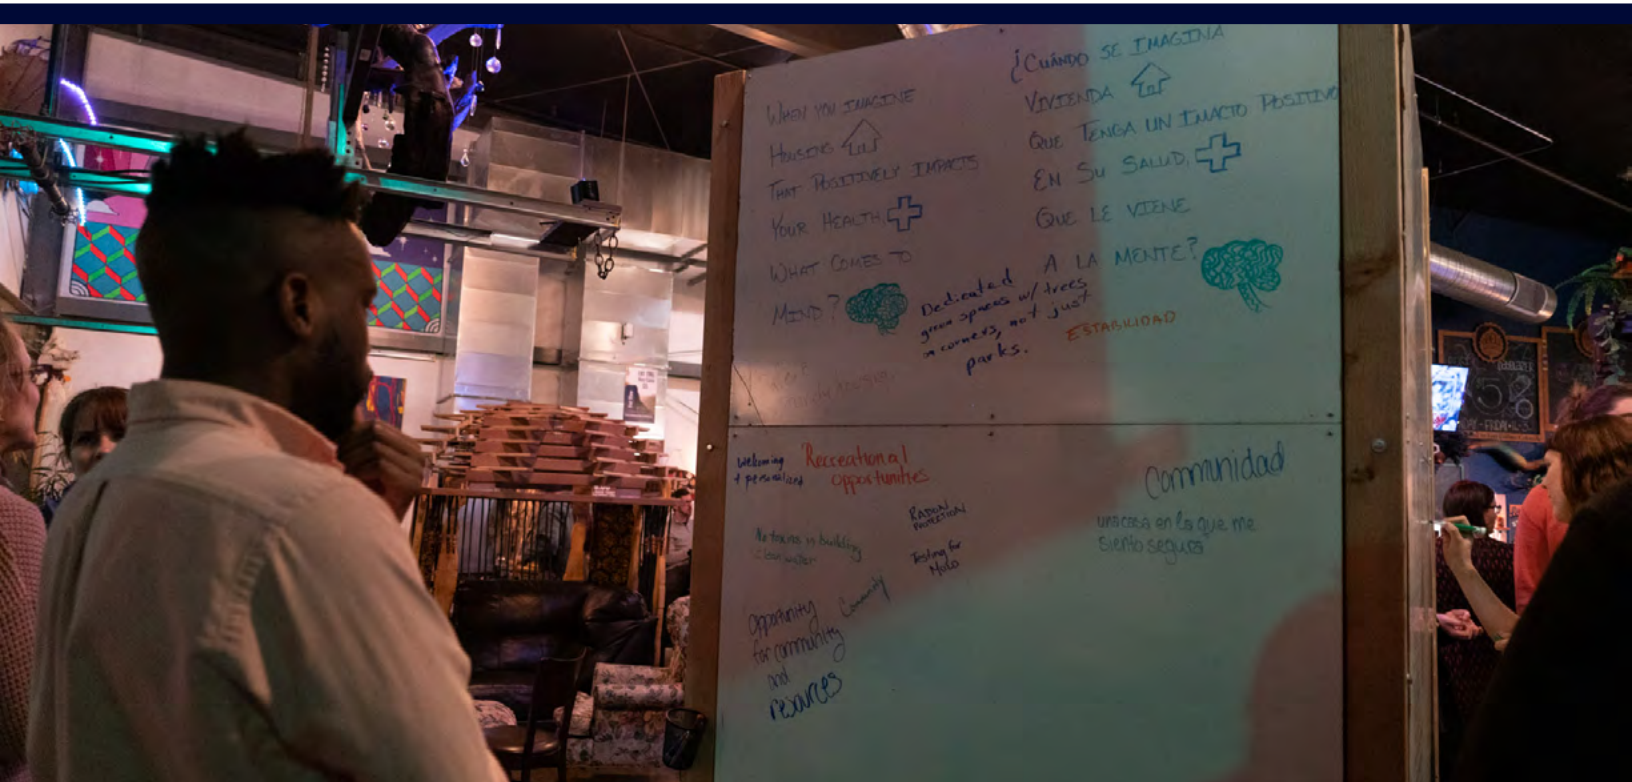 WHEN YOU IMAGINE
HOUSING
THAT POSITIVELY IMPACTS
YOUR HEALTH,
WHAT COMES TO
MIND?
¿CUÁNDO SE IMAGINA
VIVIENDA
QUE TENGA UN IMACTO POSITIVO
EN SU SALUD,
QUE LE VIENE
A LA MENTE?
Dedicated
green spaces w/ trees
on corners, not just
parks.
ESTABILIDAD
Welcoming
+ personalized
Recreational
opportunities
RADON
PROTECTION
Testing for
Mold
No toxins in building
clean water
Community
opportunity
for community
and
resources
Comunidad
una casa en la que me
siento segura